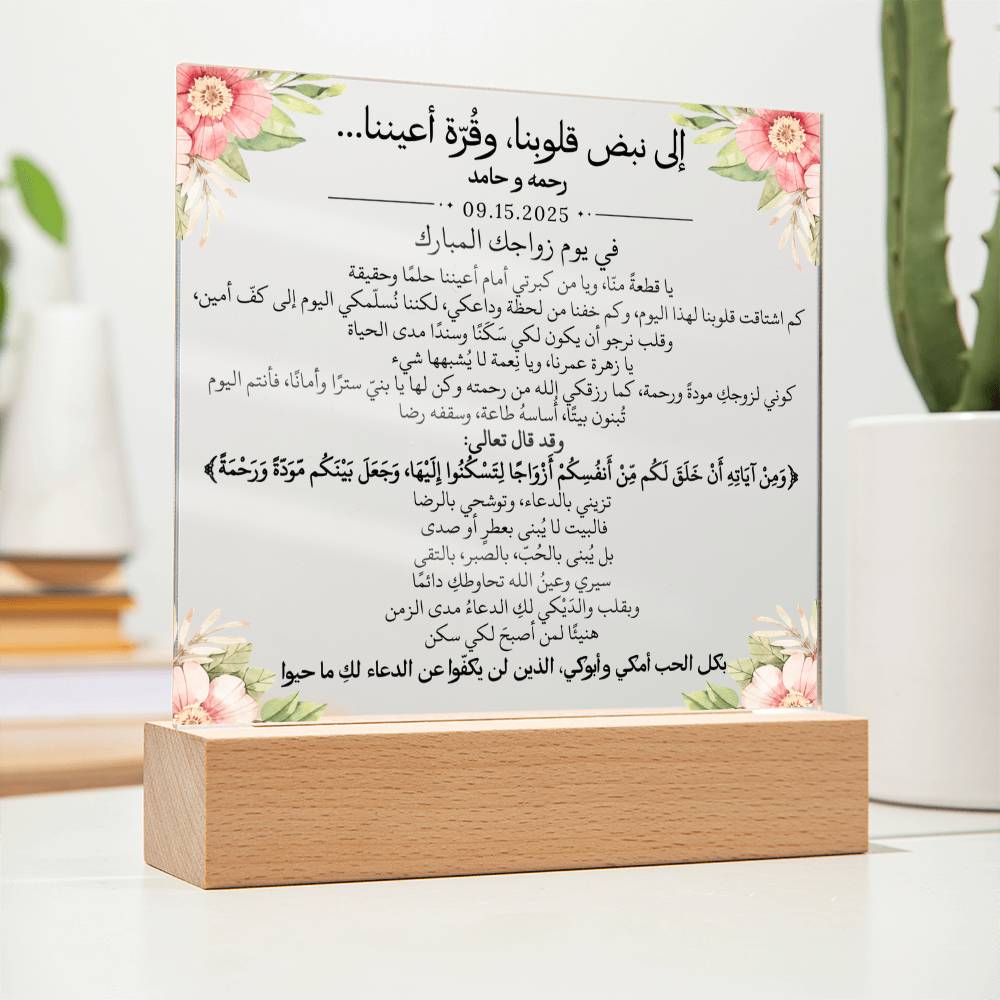 إلى نبض قلوبنا، وقُرّة أعيننا...
رحمه و حامد
09.15.2025
في يوم زواجك المبارك
يا قطعةً منّا، ويا من كبرتي أمام أعيننا حلمًا وحقيقة
كم اشتاقت قلوبنا لهذا اليوم، وكم خفنا من لحظة وداعكي، لكننا نُسلّمكي اليوم إلى كفّ أمين،
وقلب نرجو أن يكون لكي سَكَنًا وسندًا مدى الحياة
يا زهرة عمرنا، ويا نِعمة لا يُشبهها شيء
كوني لزوجكِ مودةً ورحمة، كما رزقكي الله من رحمته وكن لها يا بنيّ سترًا وأمانًا، فأنتم اليوم
تُبنون بيتًا، أساسهُ طاعة، وسقفه رضا
وقد قال تعالى:
﴿وَمِنْ آيَاتِهِ أَنْ خَلَقَ لَكُم مِّنْ أَنفُسِكُمْ أَزْوَاجًا لِتَسْكُنُوا إِلَيْهَا، وَجَعَلَ بَيْنَكُم مّوَدّةً وَرَحْمَةً﴾
تزيني بالدعاء، وتوشحي بالرضا
فالبيت لا يُبنى بعطرٍ أو صدى
بل يُبنى بالحُبّ، بالصّبر، بالتقى
سيري وعينُ الله تحاوطكِ دائمًا
وبقلب والدَيْكي لكِ الدعاءُ مدى الزمن
هنيئًا لمن أصبحَ لكي سكن
بكل الحب أمكي وأبوكي، الذين لن يكفّوا عن الدعاء لكِ ما حيوا